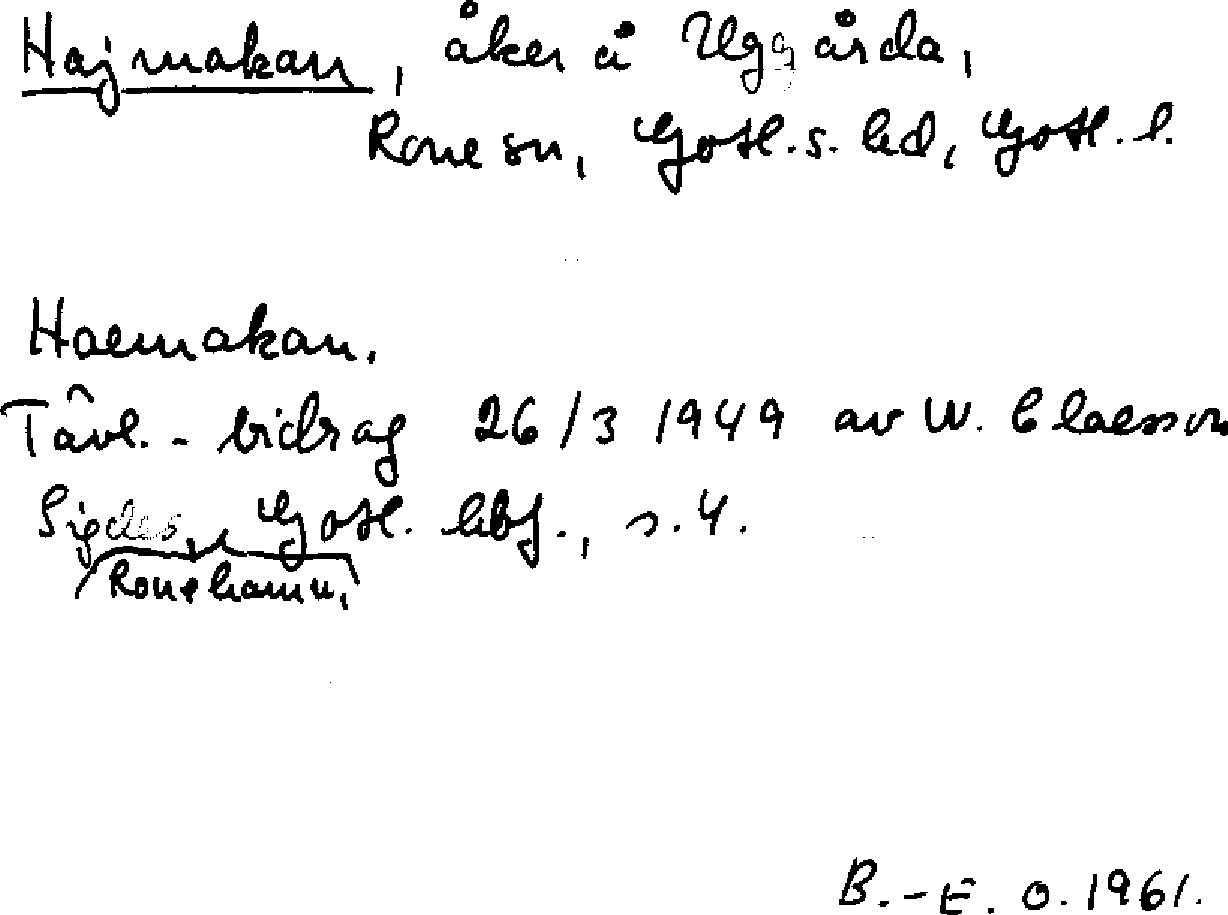 Hajmakan, åker å Uggårda,
Rone sn, Gotl. s. hd, Gotl. l.
Haemakan.
Tävl.-bidrag 26/3 1949 av W. Claesson
Sigdes, Gotl. hbf., s. 4.
Ronehamn,
B.-E. O. 1961.